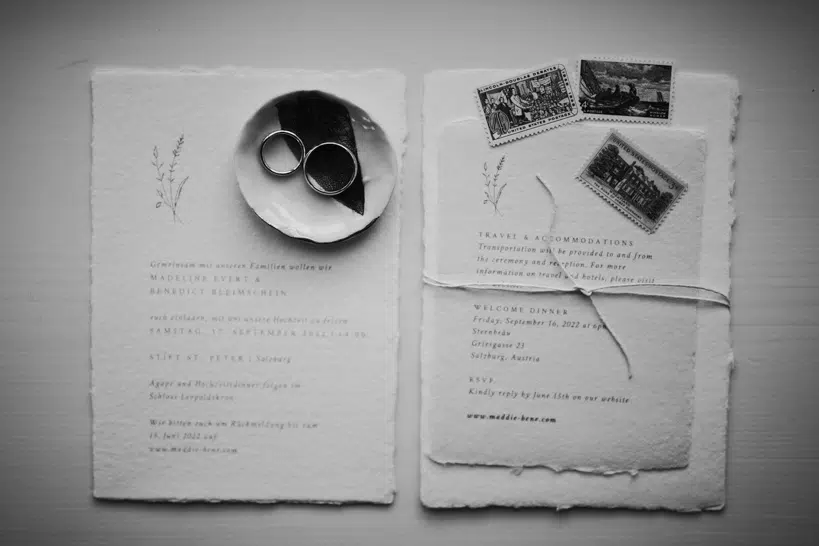 Gemeinsam mit unseren Familien wollen wir
MADELINE EVERT &
BENEDICT BLEIMSCHEIN
euch einladen, mit uns unsere Hochzeit zu feiern
SAMSTAG, 17. SEPTEMBER 2022 | 14:00
STIFT ST. PETER | Salzburg
Agape und Hochzeitsdinner folgen im
Schloss Leopoldskron
Wir bitten euch um Rückmeldung bis zum
15. Juni 2022 auf
www.maddie-bene.com
LINCOLN-DOUGLAS DEBATES
UNITED STATES POSTAGE
TRAVEL & ACCOMMODATIONS
Transportation will be provided to and from
the ceremony and reception. For more
information on travel and hotels, please visit
WELCOME DINNER
Friday, September 16, 2022 at 6pm
Sternbräu
Griesgasse 23
Salzburg, Austria
RSVP
Kindly reply by June 15th on our website
www.maddie-bene.com